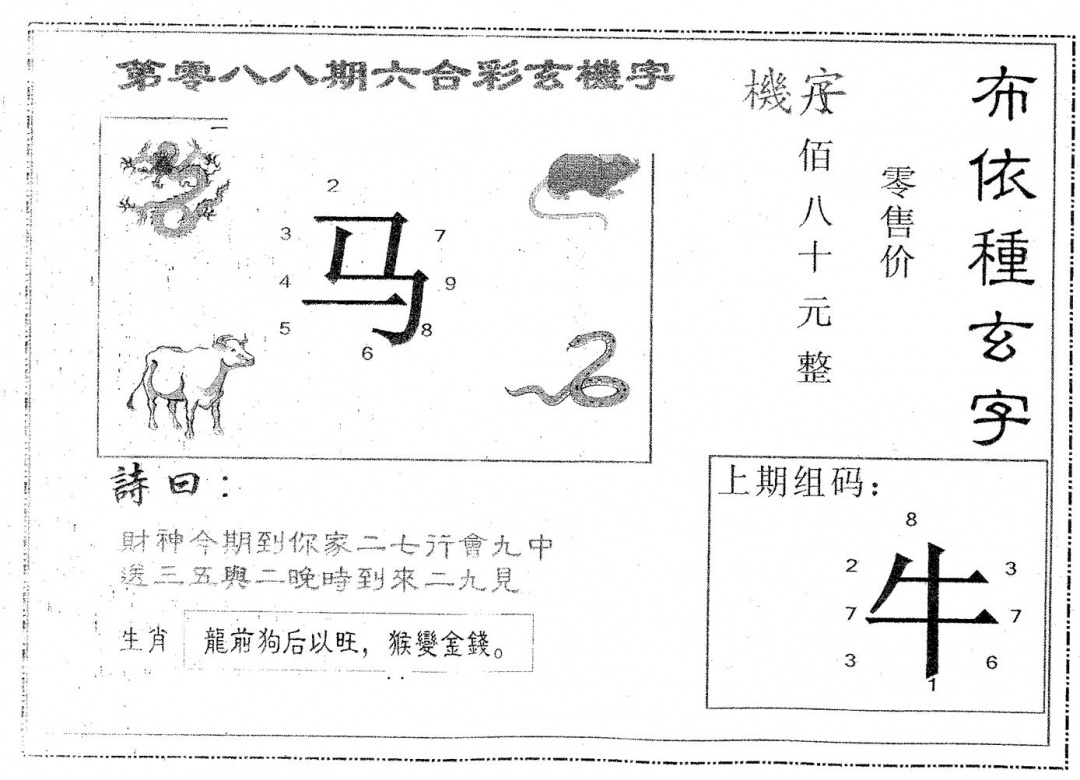 第零八八期六合彩玄機字
布依種玄字
零售价
機字
佰八十元整
2
3
马
7
4
9
5
8
6
詩曰：
財神今期到你家二七行會九中
送三五與二晚時到來二九見
生肖
龍前狗后以旺，猴變金錢。
上期组码：
8
2
3
牛
7
7
3
6
1